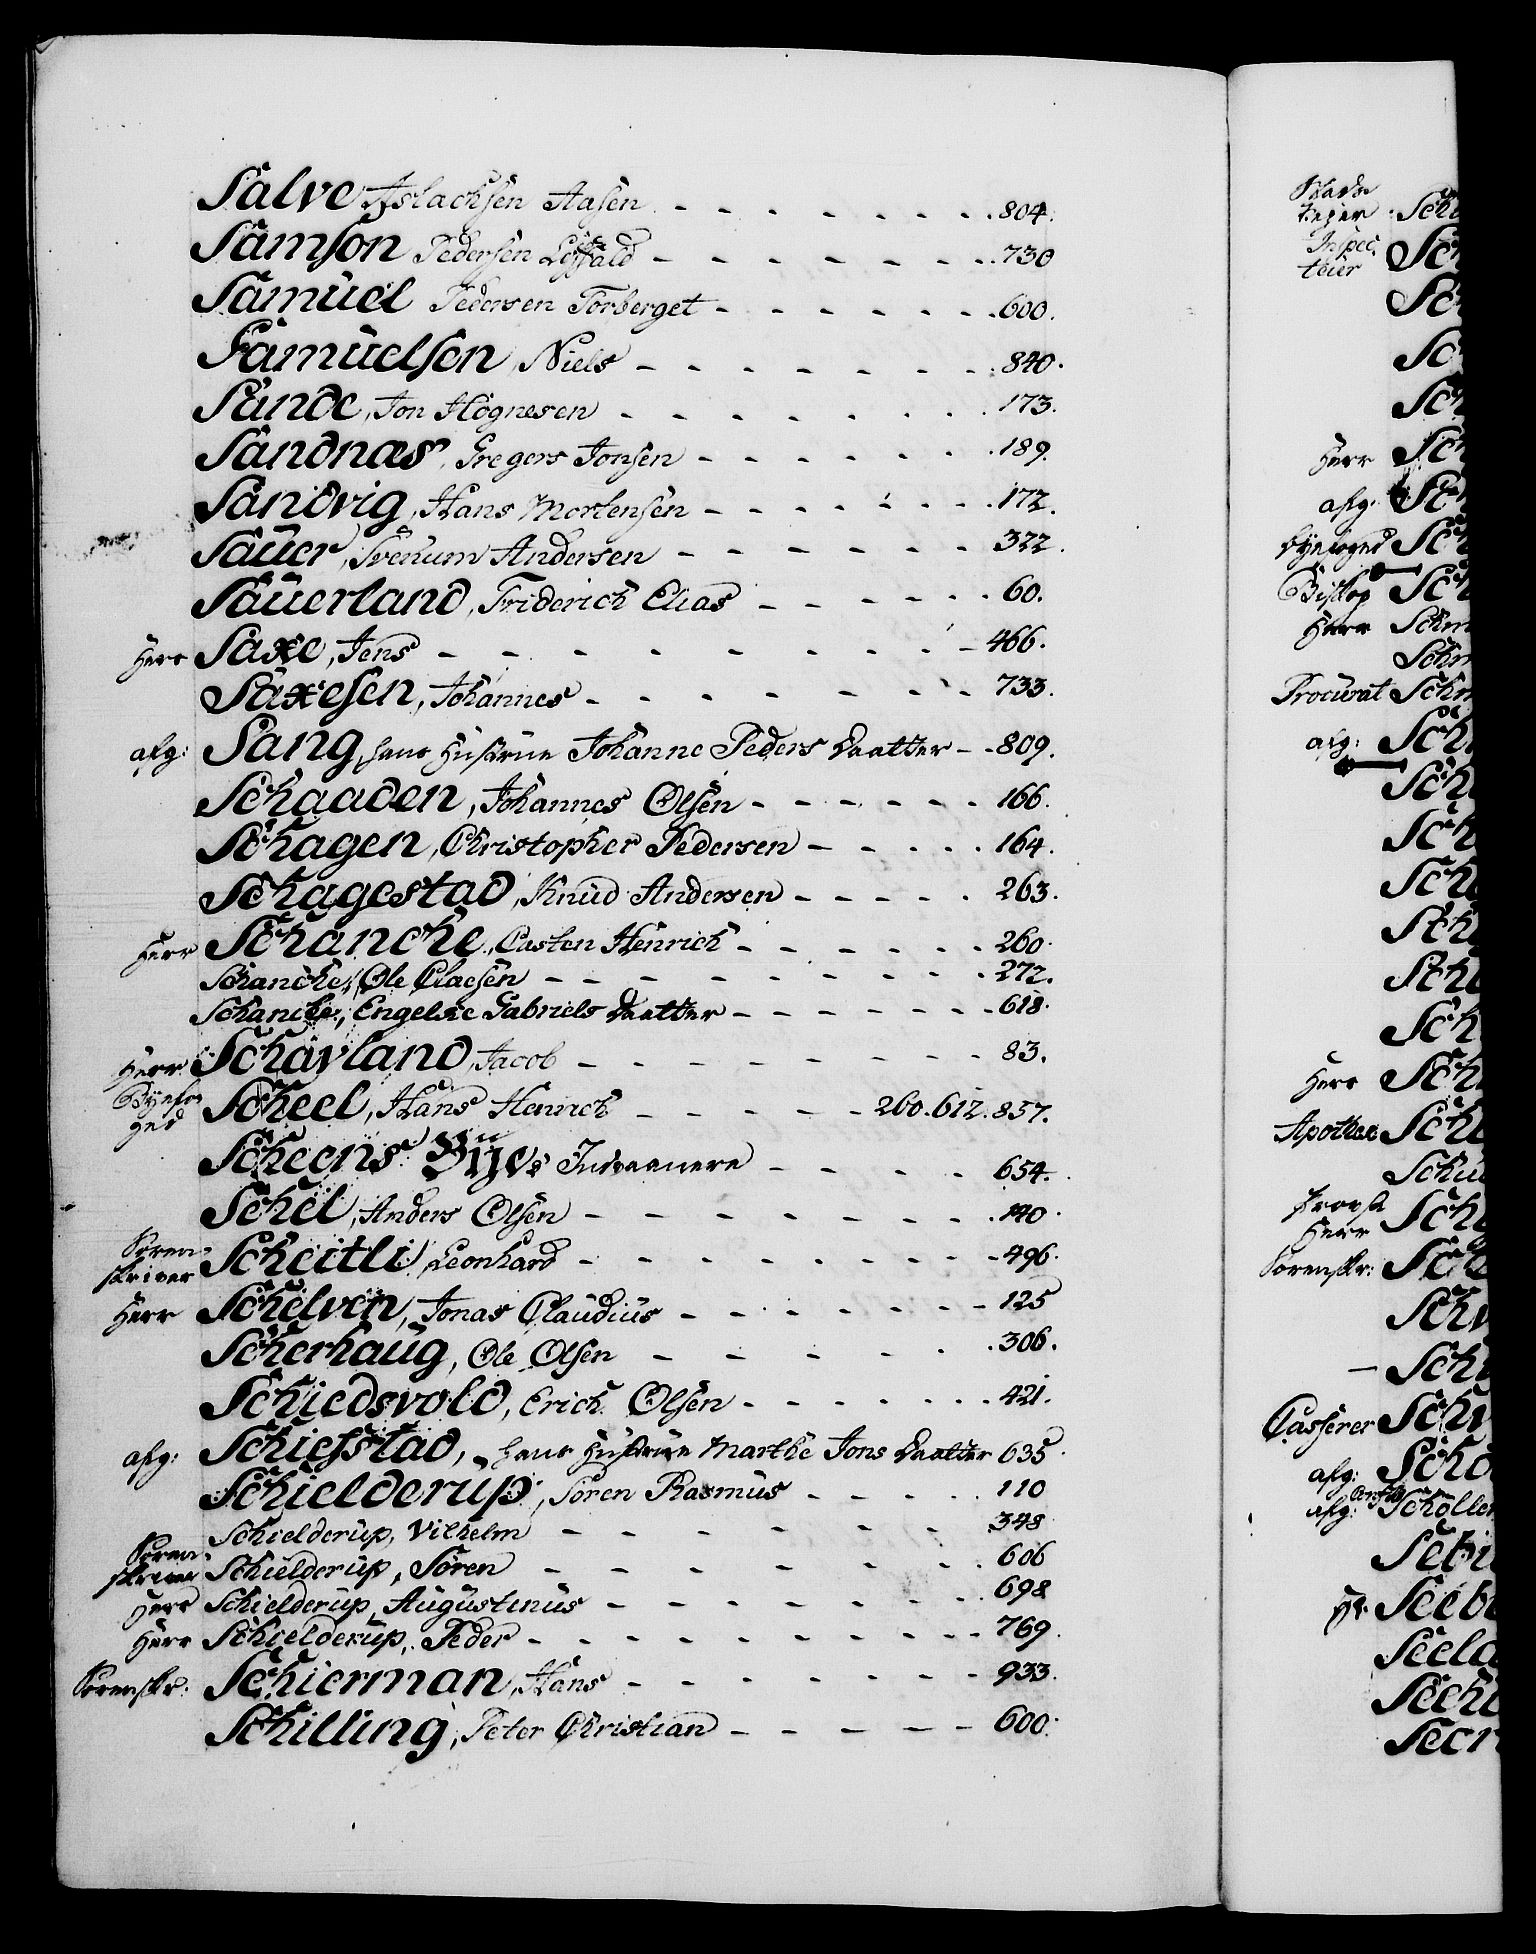 Salve Aslachsen Aasen - - - - - - - 804.
Samson Pedersen - - - - - - - - 730
Samuel Pedersen Torberget - - - - - - - 600.
Samuelsen, Niels - - - - - - - - 840.
Sande, Jon Hognesen - - - - - - - 173.
Sandnæs, Gregers Jonsen - - - - - - - 189.
Sandvig, Hans Mortensen - - - - - - - 172.
Sauer, Svenum Andersen - - - - - - - 322.
Sauerland, Friderich Elias - - - - - - 60.
Herr Saxe, Jens - - - - - - - - - - 466.
Saxesen, Johannes - - - - - - - - 733.
afg: Sang, hans Hustrue Johanne Peders Daatter - - 809.
Schaaden, Johannes Olsen - - - - - - 166.
Schagen, Christopher Pedersen - - - - - 164.
Schagestad, Knud Andersen - - - - - 263.
Herr Schancke, Casten Henrich - - - - - - 260.
Schancke, Ole Claesen - - - - - - - - - - 272.
Schancke, Engelke Gabriels Daatter - - - - - - - 618.
Herr Schavland, Jacob - - - - - - - - - 83.
Byefoged Scheel, Hans Henrich - - - - - 260. 612. 857.
Scheens Bye's Indvaanere - - - - - 654.
Schel, Anders Olsen - - - - - - - - - 140.
Sorenskriver Scheitli, Leonhard - - - - - - - - - 496.
Herr Schelven, Jonas Claudius - - - - - - - 125
Scherhaug, Ole Olsen - - - - - - - 306.
Schiedsvold, Erich Olsen - - - - - - - 421.
afg: Schiefstad, hans Hustrue Marthe Jons Daatter 635.
Schielderup, Sören Rasmus - - - - - 110
Schielderup, Vilhelm - - - - - - - - - 348
Sorenskriver Schielderup, Sören - - - - - - - - - 606
Herr Schielderup, Augustinus - - - - - - - - 698
Herr Schielderup, Peder - - - - - - - - - - - 769.
Sorenskr: Schierman, Hans - - - - - - - - 933.
Schilling, Peter Christian - - - - - - 600.
Herr
afg.
Byefoged
Biskop
Herr Schm
Schm
Procurat Schm
afg:
Herr
Apothek
Provst
Herr
Sorenskr:
Casserer
afg:
afg: Schöller